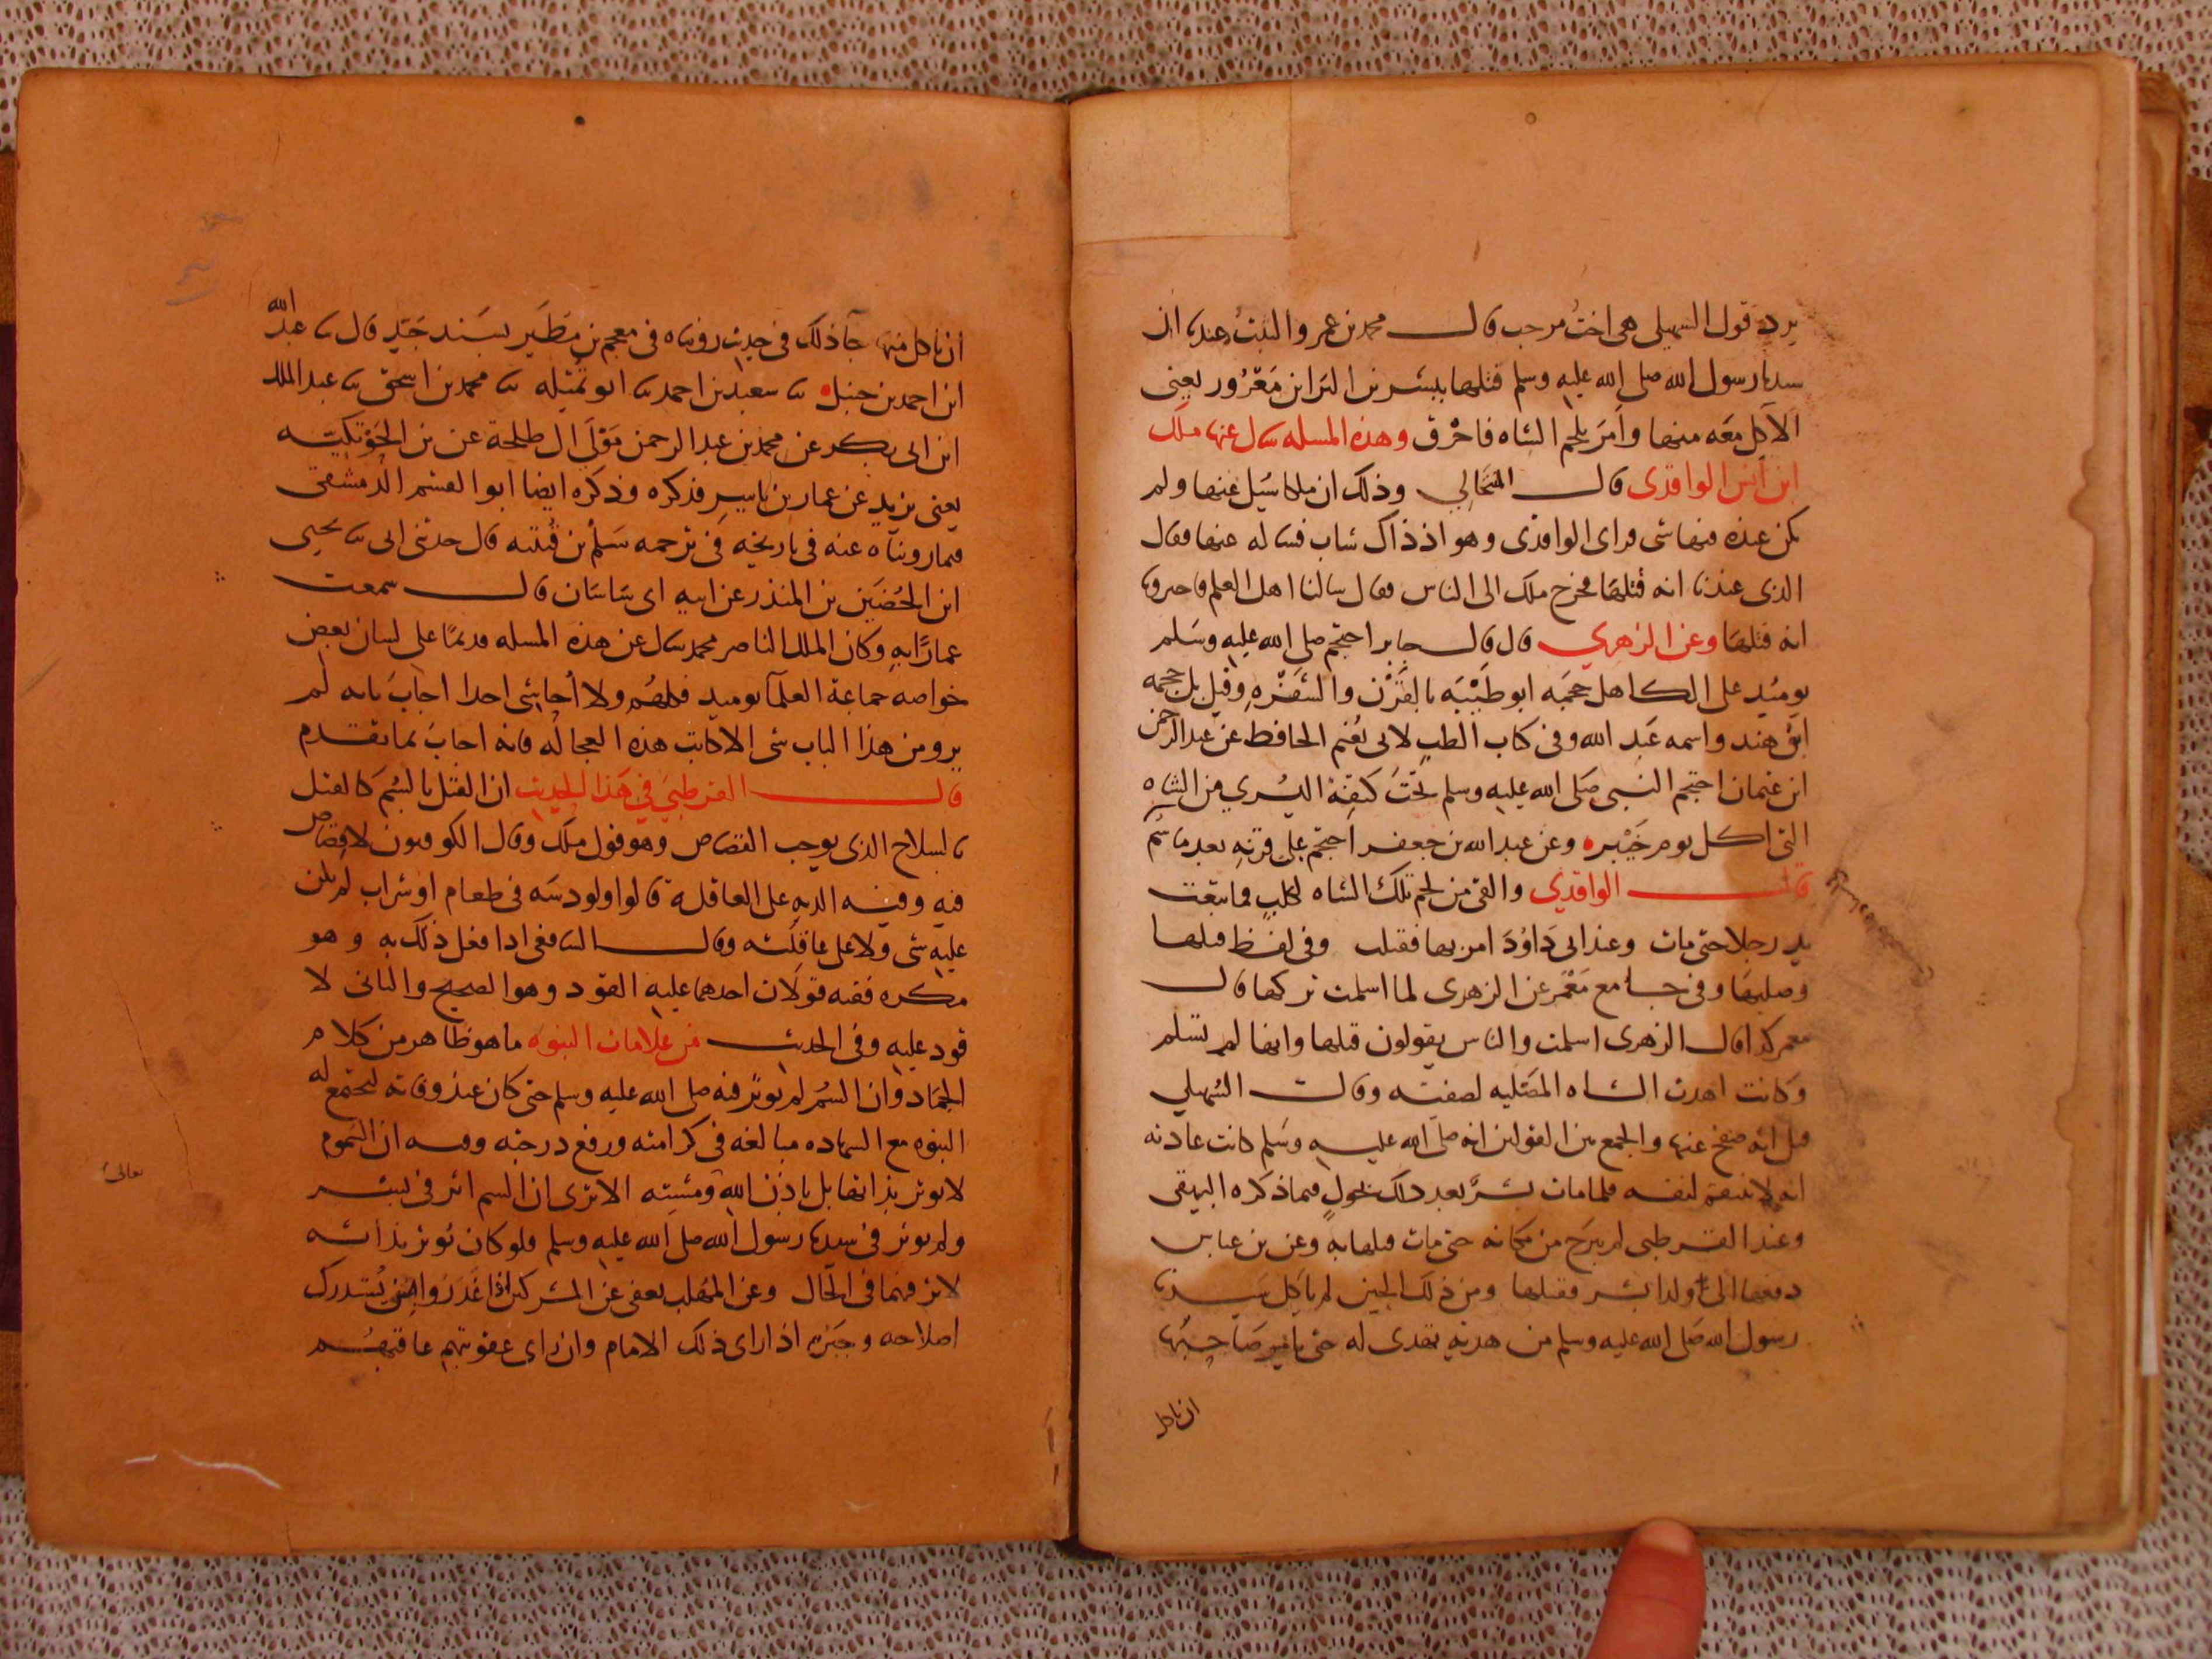 يرد قول السهيلي هي اخت مرحب قال محمد بن عمر والثبت عندنا ان
سيدنا رسول الله صلى الله عليه وسلم قتلها ببشر بن البرا بن معرور يعني
الآكل معه منها وامر بلحم الشاه فاحرق وهذه المسله سال عنها ملك
ابن انس الواقدى قال وذلك ان ملكا سُيل عنها ولم
يكن عنده فيها شى فراى الواقدى وهو اذ ذاك شاب فساله عنها فقال
الذى عندنا انه قتلها فخرج ملك الى الناس فقال سالنا اهل العلم فاخبرونا
انه قتلها وعن الزهري قال قال جابر احتجم صلى الله عليه وسلم
يوميد على الكاهل حجمه ابو طيبه بالقرن والشفره وقيل بل حجمه
ابو هند واسمه عبد الله وفى كتاب الطب لابى نعيم الحافظ عن عبد الرحمن
ابن عثمان احتجم النبى صلى الله عليه وسلم تحت كتفه اليسري من الشاه
التى اكل يوم خيبر وعن عبد الله بن جعفر احتجم على قرنه بعد ما سُم
قال الواقدي والقى من لحم تلك الشاه لكلب فما تبعت
يد رجلا حتى مات وعند ابى داود امر بها فقتلت وفى لفظ قتلها
وصلبها وفى جامع معمر عن الزهرى لما اسلمت تركها قال
معمر كذا قال الزهرى اسلمت والناس يقولون قتلها وانها لم تسلم
وكانت اهدت الشاه المصليه لصفيه وقال السهيلي
قيل انه صفح عنها والجمع بين القولين انه صلى الله عليه وسلم كانت عادته
انه لا ينتقم لنفسه فلما مات بشر بعد ذلك بحول فيما ذكره البيهقى
وعند القرطبى لم يبرح من مكانه حتى مات قتلها به وعن بن عباس
دفعها الى اوليا بشر فقتلها ومن ذلك الحين لم ياكل سيدنا
رسول الله صلى الله عليه وسلم من هديه تهدى له حتى يامر صاحبها
ان ياكل
ان ياكل منها جآ ذلك فى حديث رويناه فى معجم بن مطير بسند جيد قال ثنا عبد الله
ابن احمد بن حنبل ثنا سعيد بن احمد ثنا ابو تميله ثنا محمد بن اسحق ثنا عبد الملك
ابن ابى بكر عن محمد بن عبد الرحمن مولى ال طلحة عن بن الحوتكيه
يعنى يزيد عن عمار بن ياسر فذكره وذكره ايضا ابو القسم الدمشقى
فيما رويناه عنه فى تاريخه فى ترجمه سلم بن قتيبه قال حدثنى ابى ثنا يحيى
ابن الحضين بن المنذر عن ابيه ابى ساسان قال سمعت
عمارا به وكان الملك الناصر محمد سال عن هذه المسله قديما على لسان بعض
خواصه جماعة العلمآ يوميد فكلهم ولا أحاشى احدا اجاب بانه لم
ير و من هذا الباب شى الا كاتب هذه العجاله فانه اجاب بما تقدم
قال القرطبي في هذا الحديث ان القتل بالسُم كالقتل
بالسلاح الذى يوجب القصاص وهو قول ملك وقال الكوفيون لا قصاص
فيه وفيه الديه على العاقلة قالوا ولو دسه فى طعام او شراب لم يكن
عليه شى ولا على عاقلته وقال الشافعى اذا فعل ذلك به وهو
مكره ففيه قولان احدهما عليه القود وهو الصحيح والثانى لا
قود عليه وفى الحديث من علامات النبوه ما هو ظاهر من كلام
الجماد له وان السُم لم يوثر فيه صلى الله عليه وسلم حتى كان عند وفاته لتجتمع له
النبوه مع الشهاده مبالغه فى كرامته ورفع درجته وفيه ان السموم
لا يوثر بذاتها بل باذن الله ومشيته الا ترى ان السم اثر فى بشر
تعالى
ولم يوثر فى سيدنا رسول الله صلى الله عليه وسلم فلو كان يوثر بذاته
لاثر فيهما فى الحال وعن المهلب يعفى عن المشركين اذا غدروا بشى يُستدرك
اصلاحه وجبره اذا راى ذلك الامام وان راى عقوبتهم عاقبهم